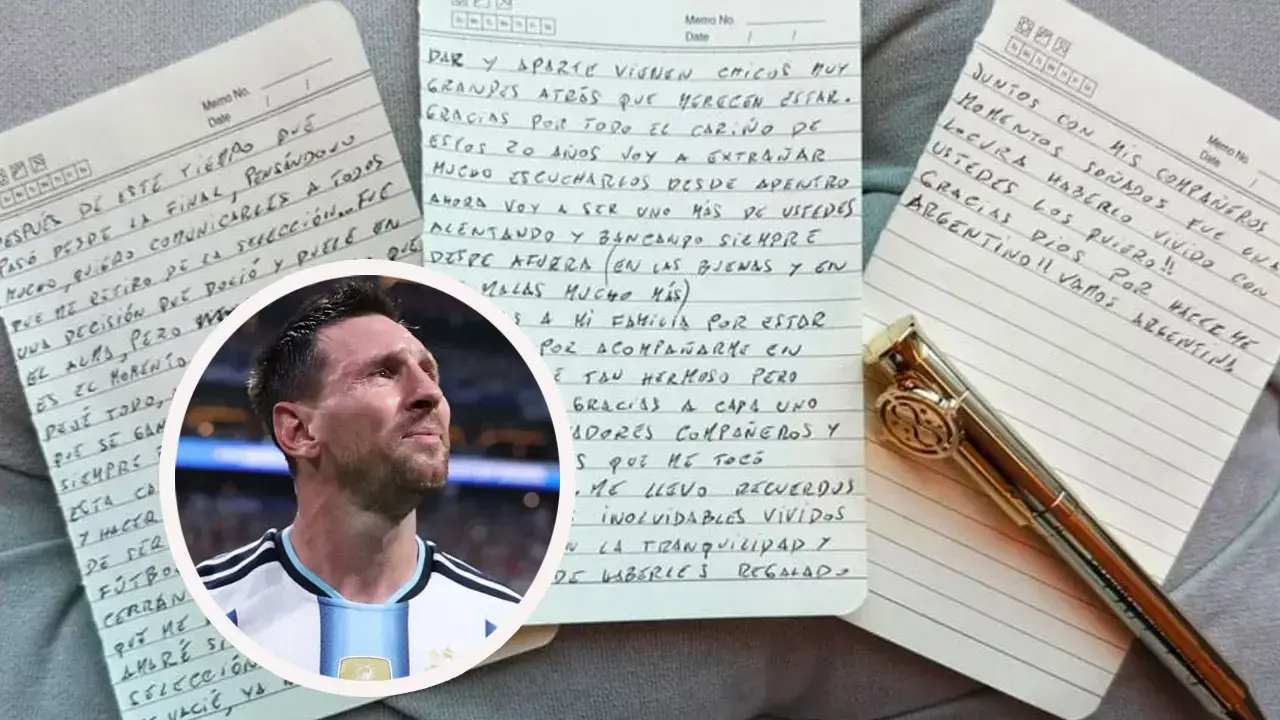 Memo No.
Date / /
DESPUÉS DE ESTE TIEMPO QUE
PASÓ DESDE LA FINAL, PENSÁNDOLO
MUCHO, QUIERO COMUNICARLES A TODOS
QUE ME RETIRO DE LA SELECCIÓN... FUE
UNA DECISIÓN QUE DOLIÓ Y DUELE EN
EL ALMA, PERO QUE
ES EL MOMENTO
DEJÉ TODO,
QUE SE
SIEMPRE
ESTA
Y HACER
DE SER
CERRÁN
QUE ME
AMARÉ
SELECCIÓN
VACIÉ, YA
Memo No.
Date / /
DAR Y APARTE VIENEN CHICOS MUY
GRANDES ATRÁS QUE MERECEN ESTAR.
GRACIAS POR TODO EL CARIÑO DE
ESTOS 20 AÑOS VOY A EXTRAÑAR
MUCHO ESCUCHARLOS DESDE ADENTRO
AHORA VOY A SER UNO MÁS DE USTEDES
ALENTANDO Y BANCANDO SIEMPRE
DESDE AFUERA (EN LAS BUENAS Y EN
MALAS MUCHO MÁS)
A MI FAMILIA POR ESTAR
POR ACOMPAÑARME EN
TAN HERMOSO PERO
GRACIAS A CADA UNO
ADORES COMPAÑEROS Y
S QUE ME TOCÓ
ME LLEVO RECUERDOS
INOLVIDABLES VIVIDOS
N LA TRANQUILIDAD Y
DE HABERLES REGALADO
Memo No.
Date /
JUNTOS CON MIS COMPAÑEROS
MOMENTOS SOÑADOS FUE UNA
LOCURA HABERLO VIVIDO CON
USTEDES LOS QUIERO!!
GRACIAS DIOS POR HACERME
ARGENTINO!! VAMOS ARGENTINA